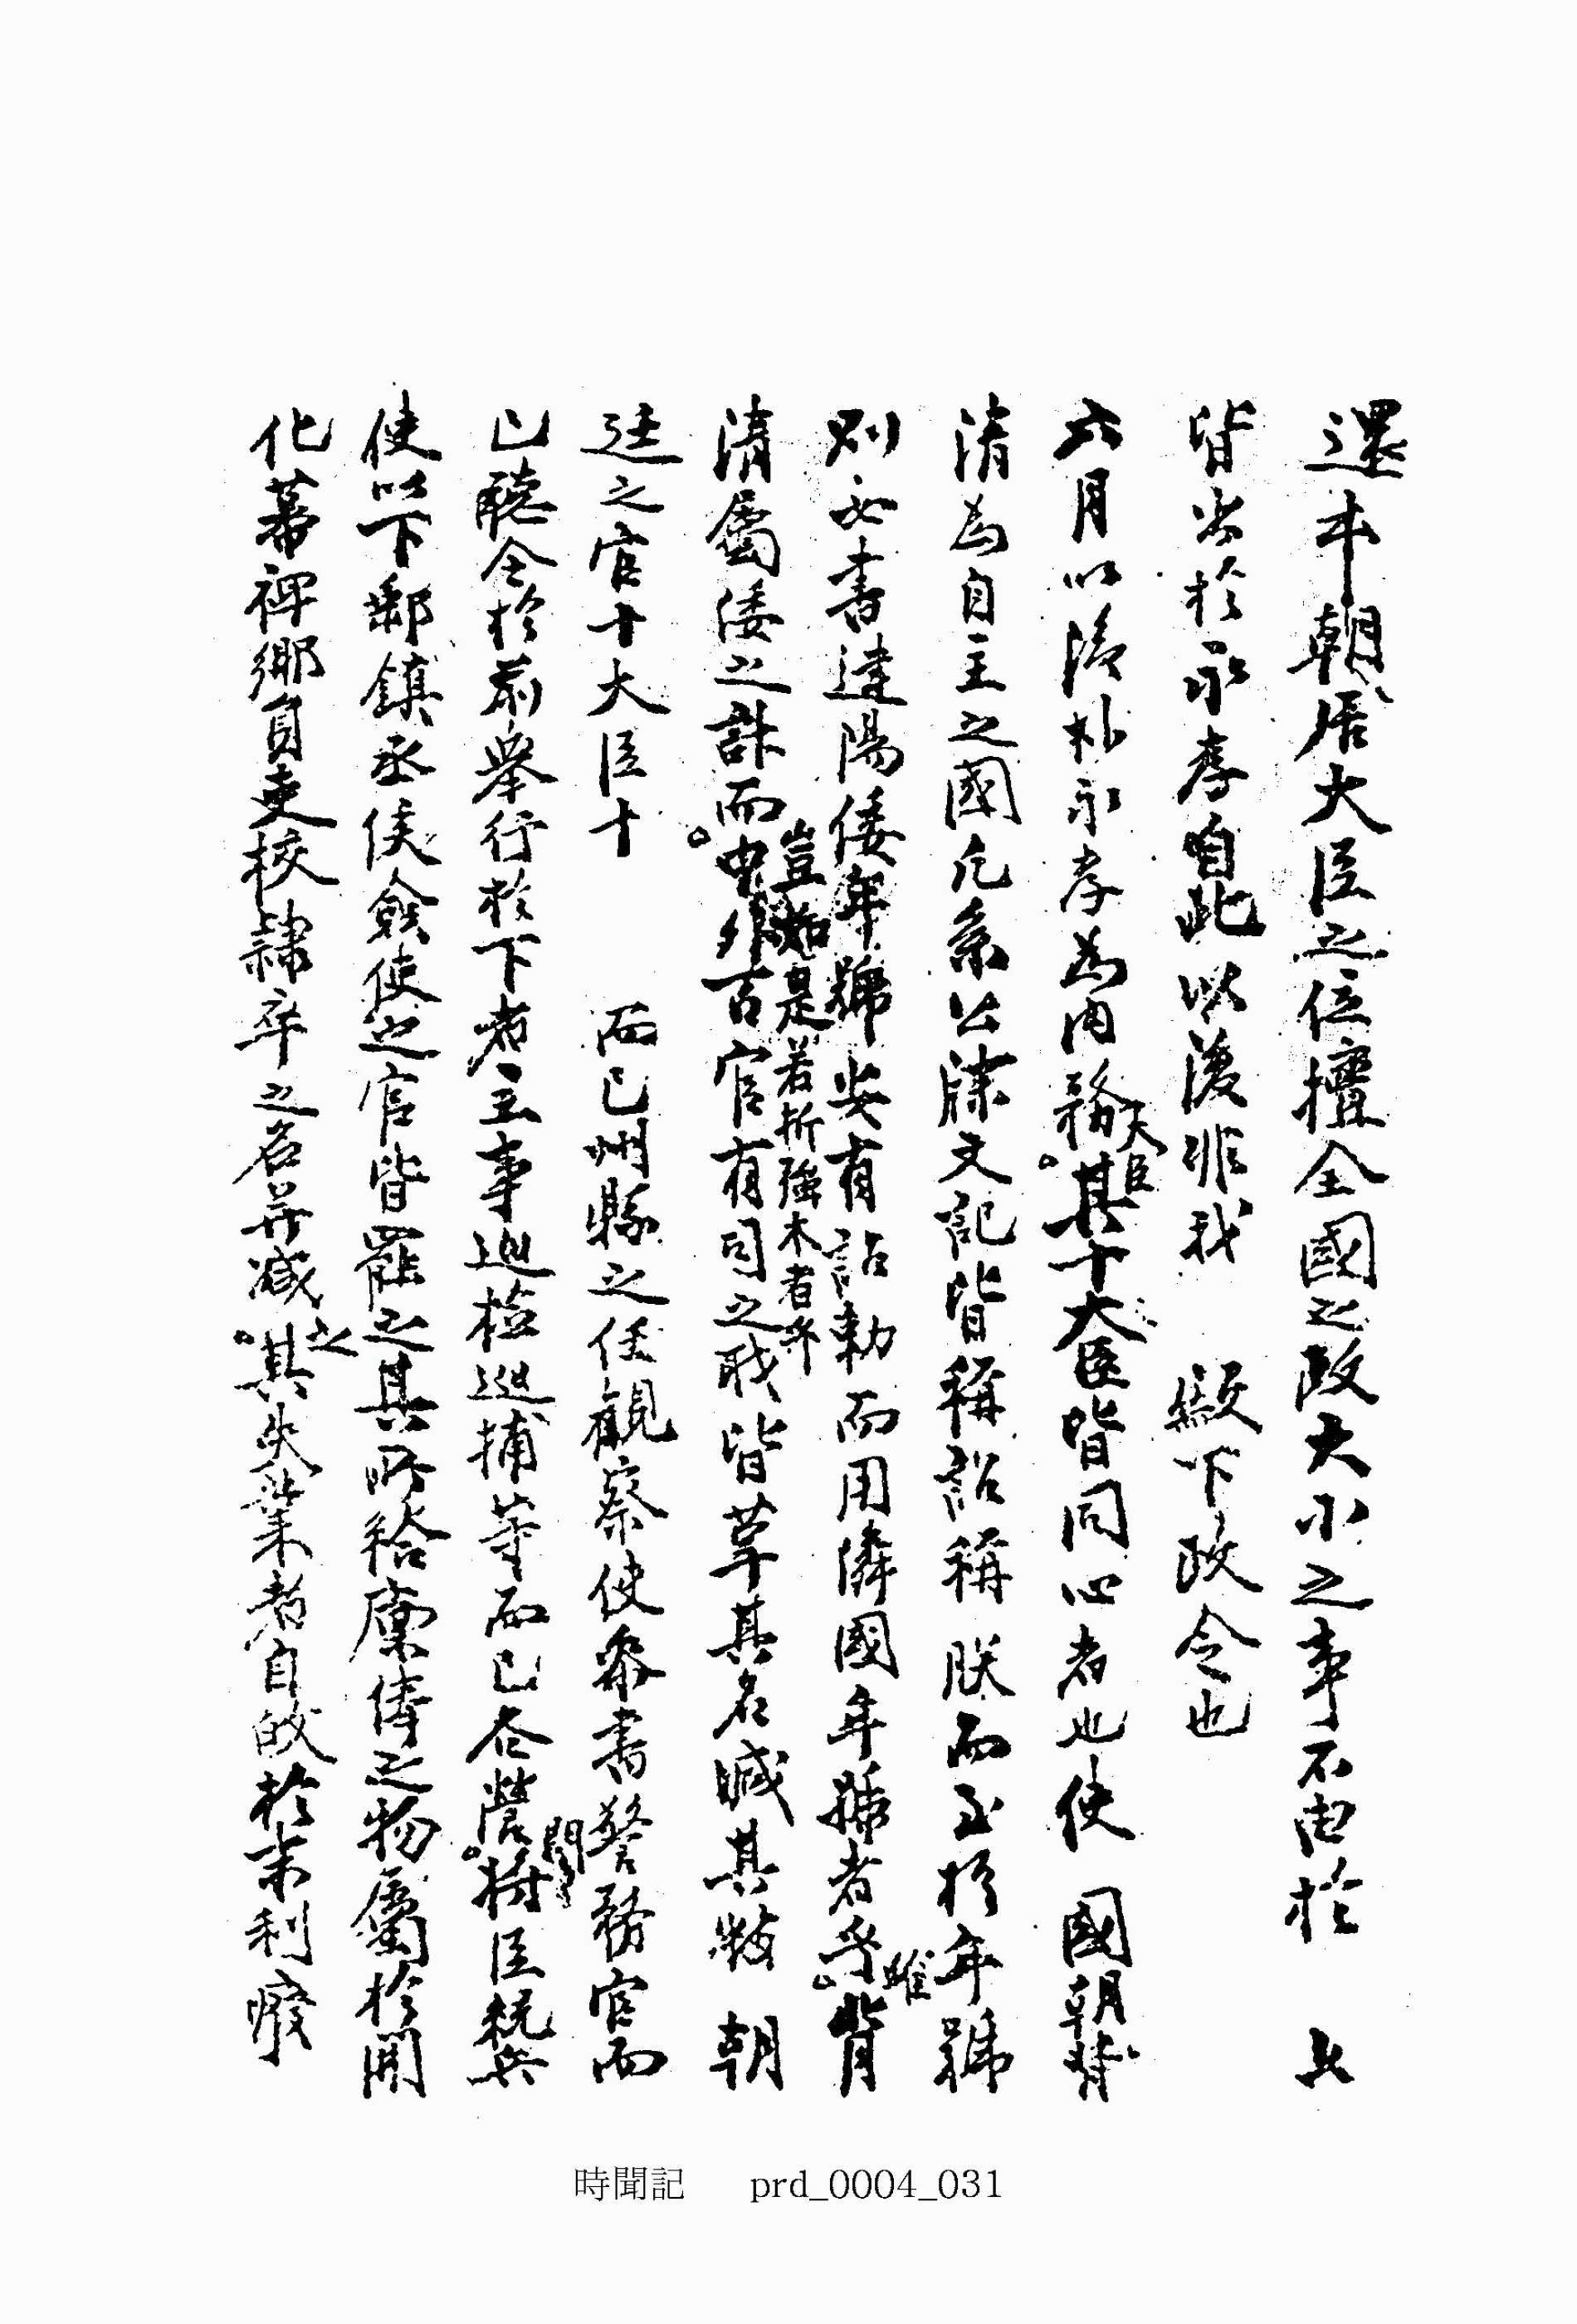 還本朝居大臣之位擅全國之政大小之事不由於 上
皆出於永孝自此以後非我 殿下政令也
六月以後朴永孝為內務大臣其十大臣皆同心者也使 國朝背
清為自主之國凡系公牒文記皆稱詔稱朕而至於年號
則必書建陽倭年號安有詔勅而用隣國年號者乎雖背
清屬倭之計而豈如是若折強木者乎中外言官有司之職皆革其名減其數 朝
廷之官十大臣十 而已州縣之任觀察使參書警務官而
已聽令於前舉行於下者主事巡檢巡捕等而已各營閫將臣統兵
使以下郵鎮丞侯僉使之官皆罷之其所給廩俸之物屬於開
化幕裨鄉員吏校隷卒之名並減之其失業者自皈於末利廢
時聞記 prd_0004_031